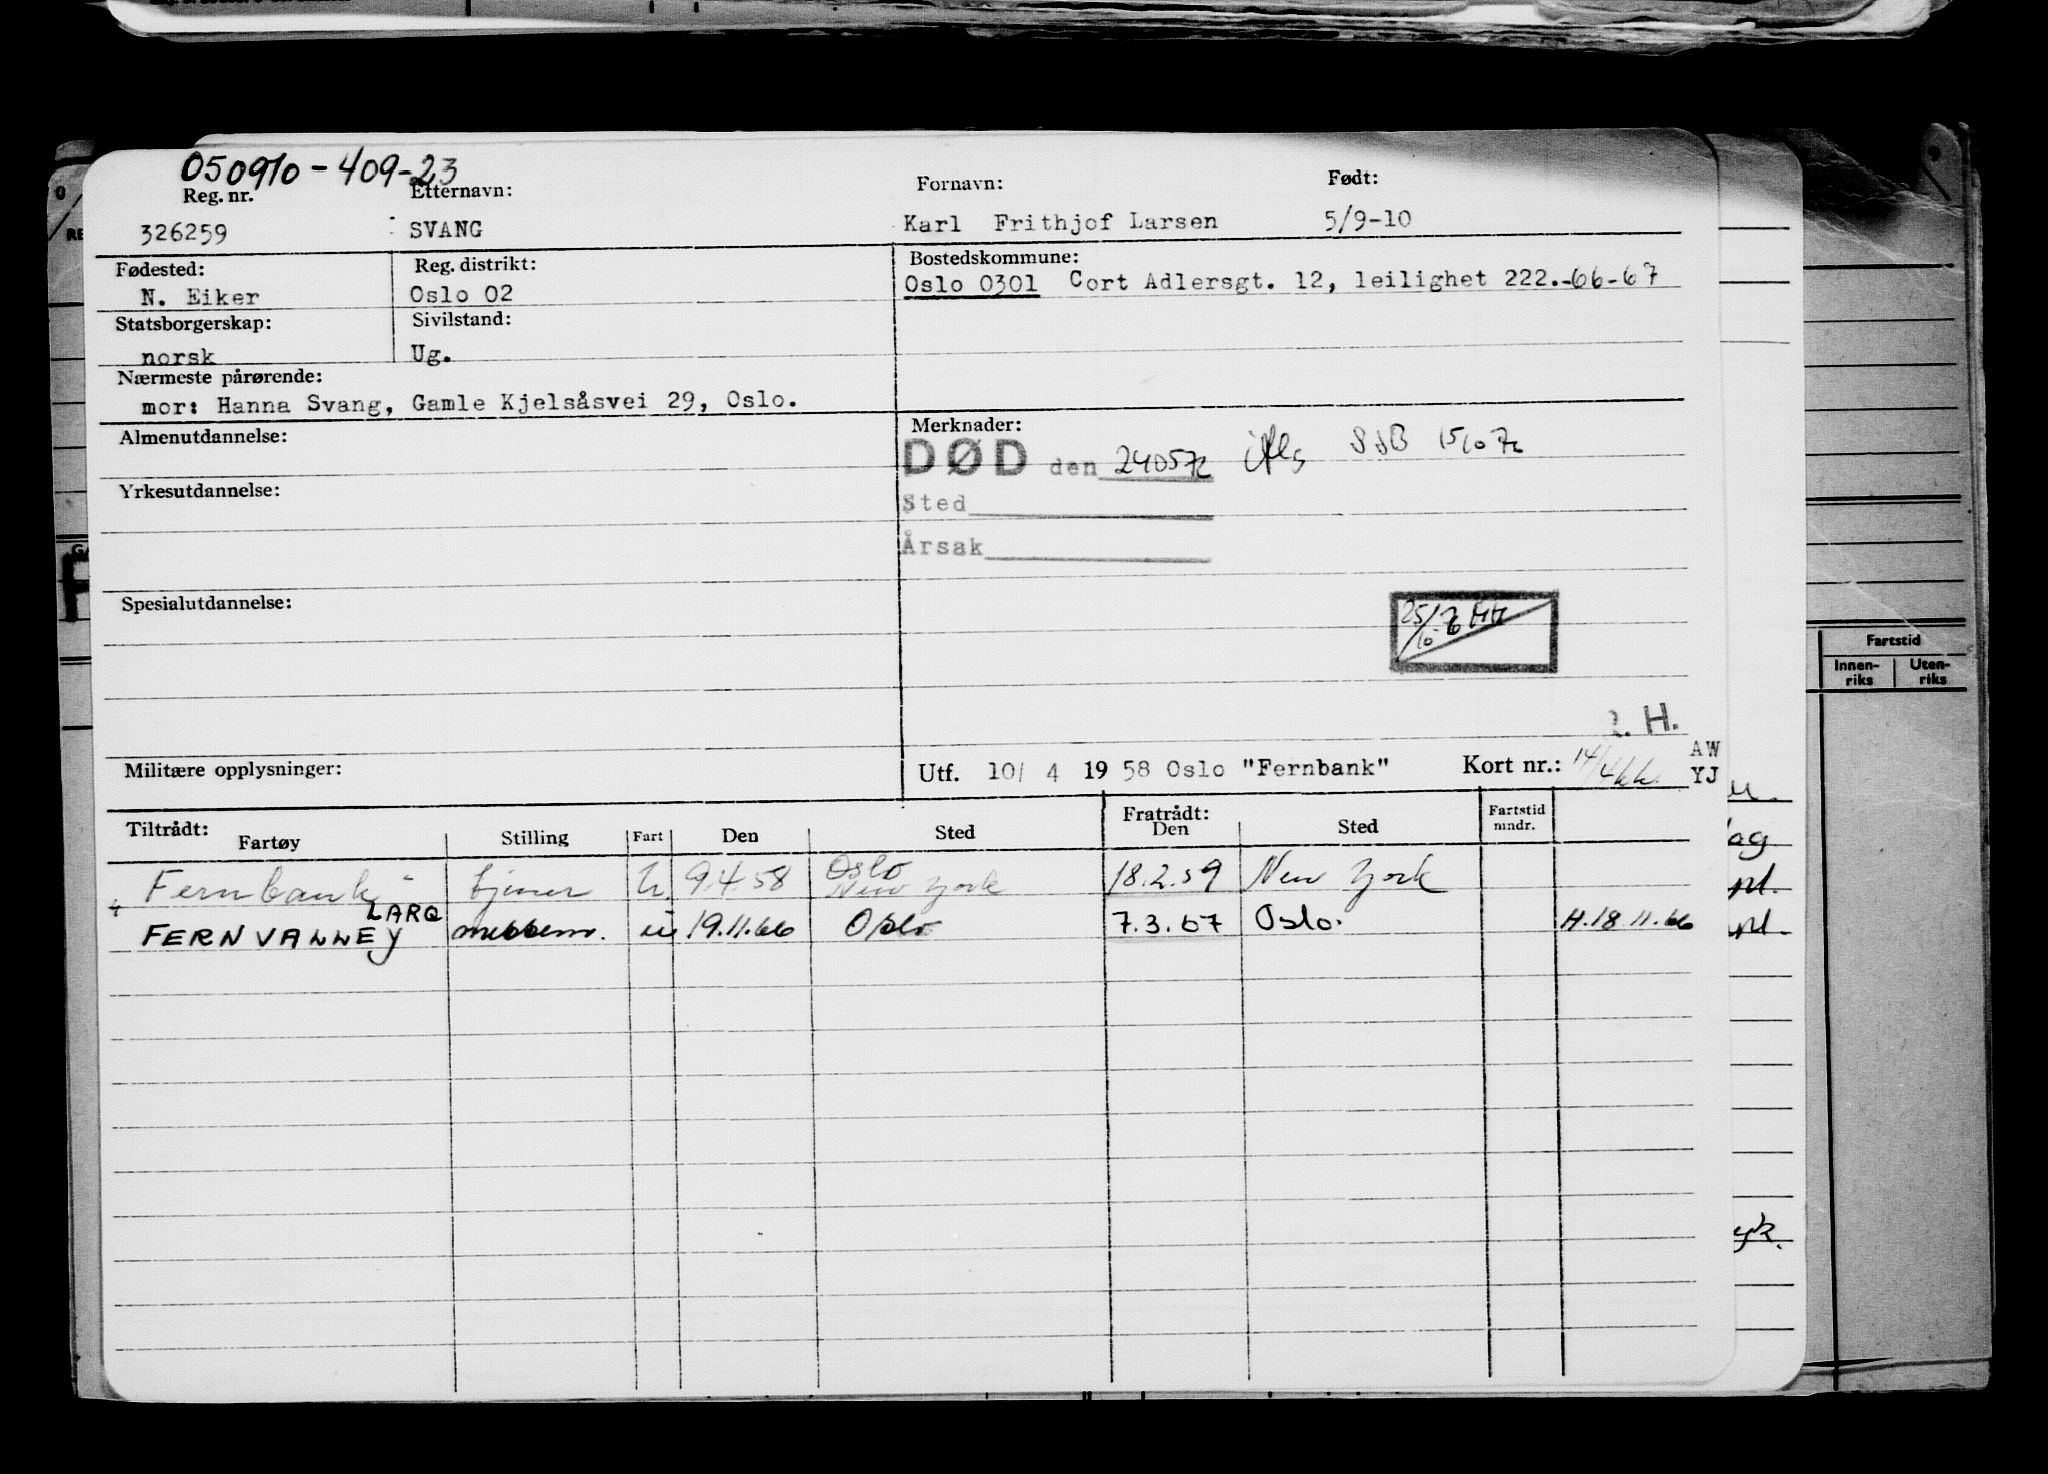 050910-409-23
Reg. nr. Etternavn: Fornavn: Født:
326259 SVANG Karl Frithjof Larsen 5/9-10
Fødested: Reg. distrikt: Bostedskommune:
N. Eiker Oslo 02 Oslo 0301 Cort Adlersgt. 12, leilighet 222.-66-67
Statsborgerskap: Sivilstand:
norsk Ug.
Nærmeste pårørende:
mor: Hanna Svang, Gamle Kjelsåsvei 29, Oslo.
Almenutdannelse: Merknader:
DØD den 240572 iflg SSB 15/10 72
Yrkesutdannelse: Sted
Årsak
Spesialutdannelse:
25/10-76
. H.
Militære opplysninger: Utf. 10/ 4 19 58 Oslo "Fernbank" Kort nr.: 14/4 AW
YJ
Tiltrådt: Fratrådt: Fartstid
Fartøy Stilling Fart Den Sted Den Sted mndr.
"Fernbank" tjener u. 9.4.58 Oslo New York 18.2.59 New York
LARQ
FERNVALLEY messem. u 19.11.66 Oslo 7.3.67 Oslo. H.18.11.66
Fartstid
Innen-riks Uten-riks